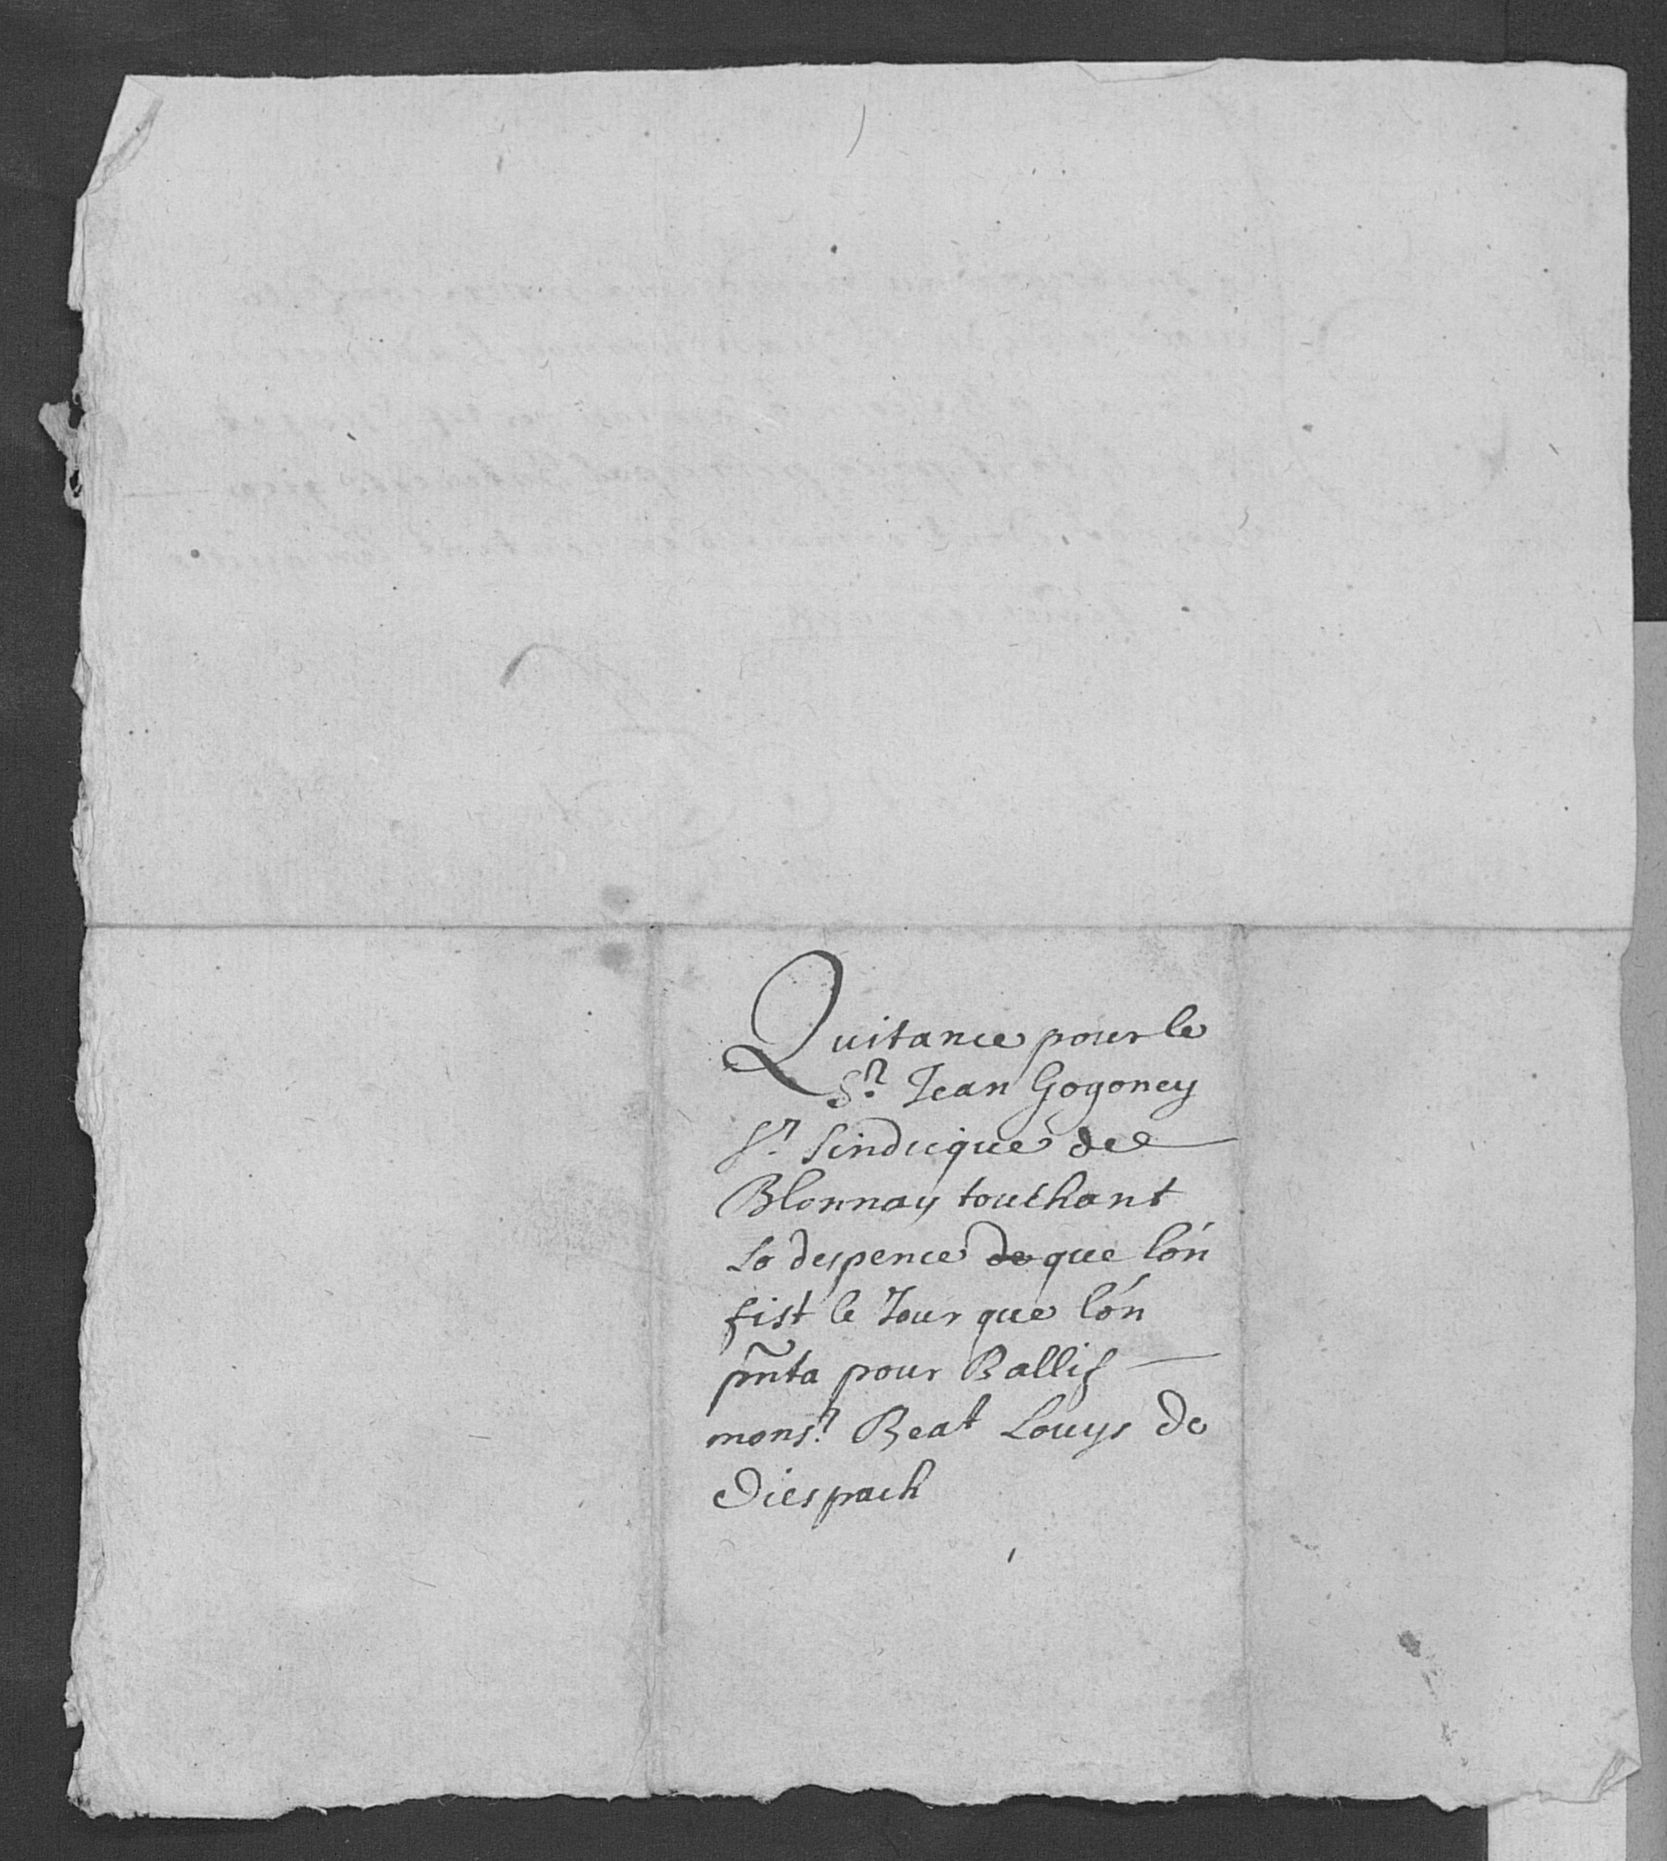 Quitance pour le
Sr. Jean Gogoney
Sr. Sindicque de
Blonnay touchant
La despence de que lón
fist le Jour que lón
pñta pour Ballif
monsr. Beat Louys de
Diespach